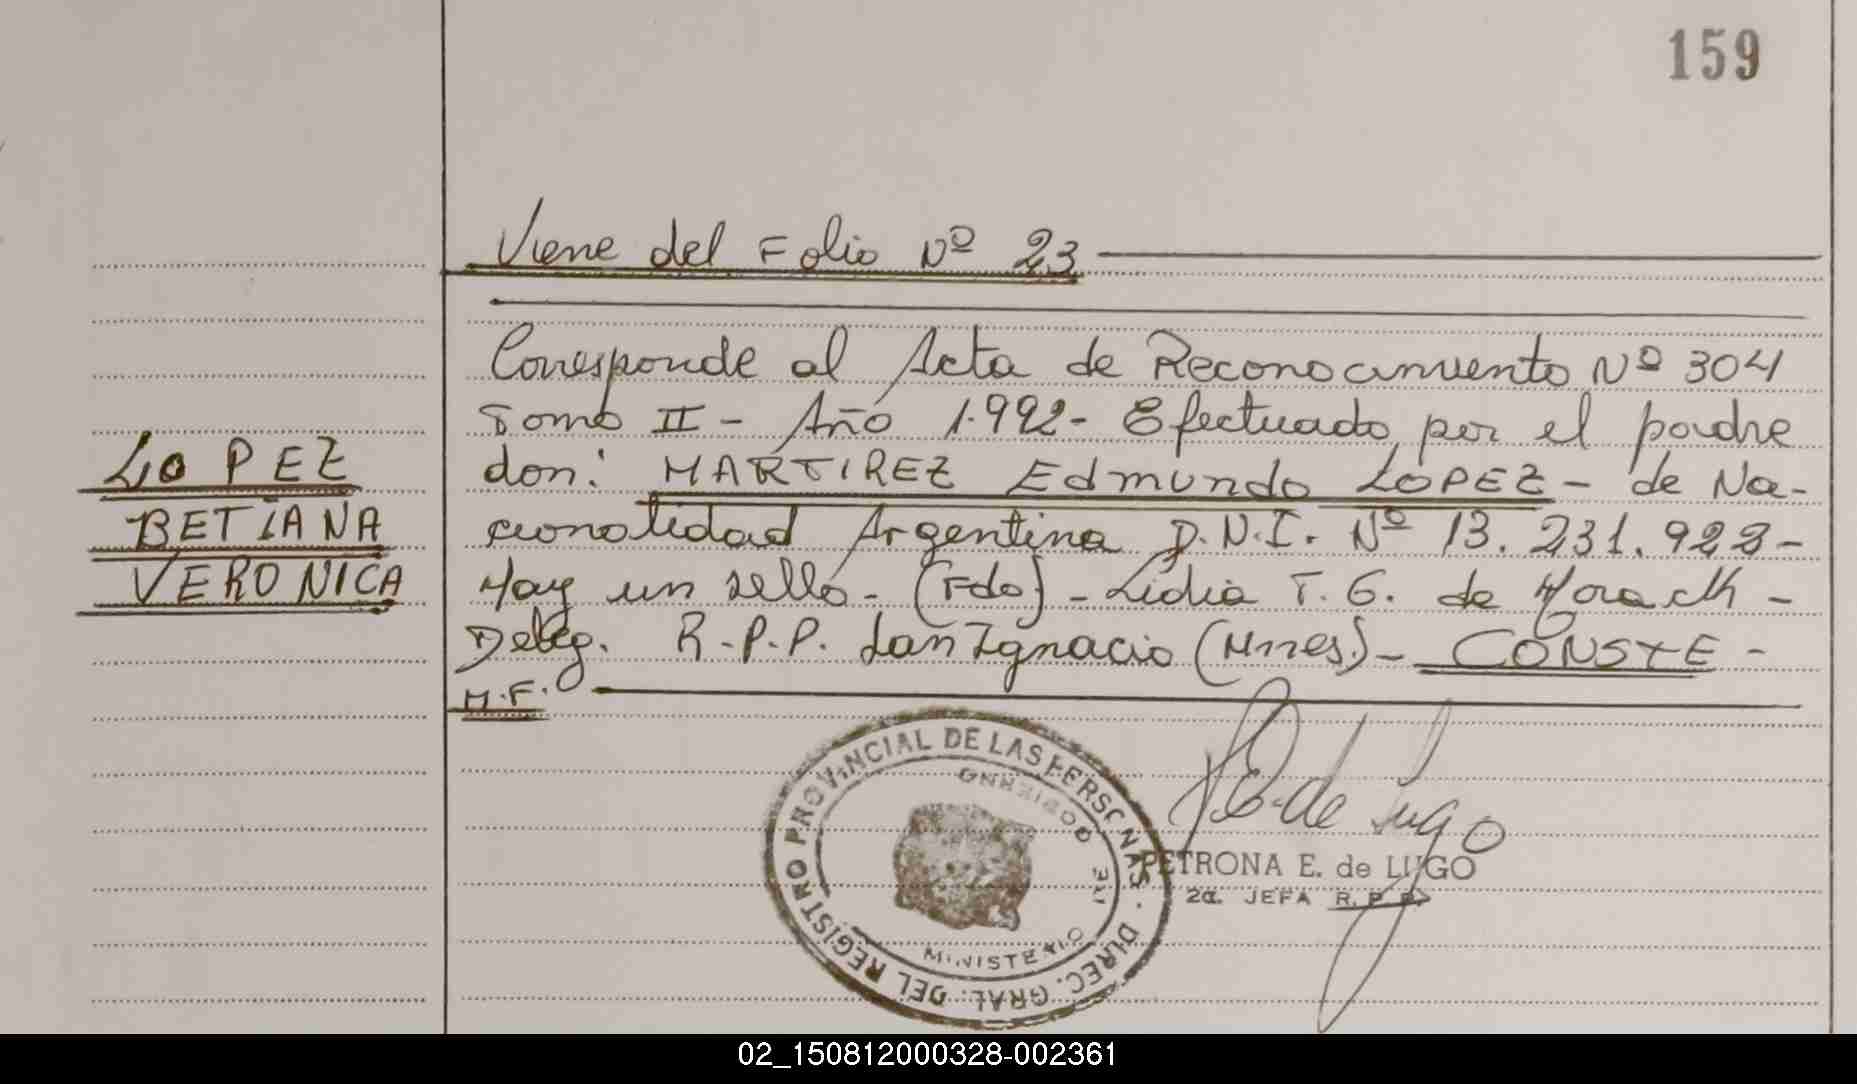 159
Viene del Folio Nº 23
Corresponde al Acta de Reconocimiento Nº 304
Tomo II - Año 1.992- Efectuado por el padre
don: MARTIREZ Edmundo LOPEZ - de Na-
cionalidad Argentina D.N.I. Nº 13.231.928-
Hay un sello - (Fdo) - Lidia T. G. de
Deleg. R.P.P. San Ignacio (Mnes.) - CONSTE -
M.F.
LOPEZ
BETIANA
VERONICA
DIREC. GRAL. DEL REGISTRO PROVINCIAL DE LAS PERSONAS
MINISTERIO DE GOBIERNO
P.E. de Lugo
PETRONA E. de LUGO
2a. JEFA R.P.P.
02_150812000328-002361